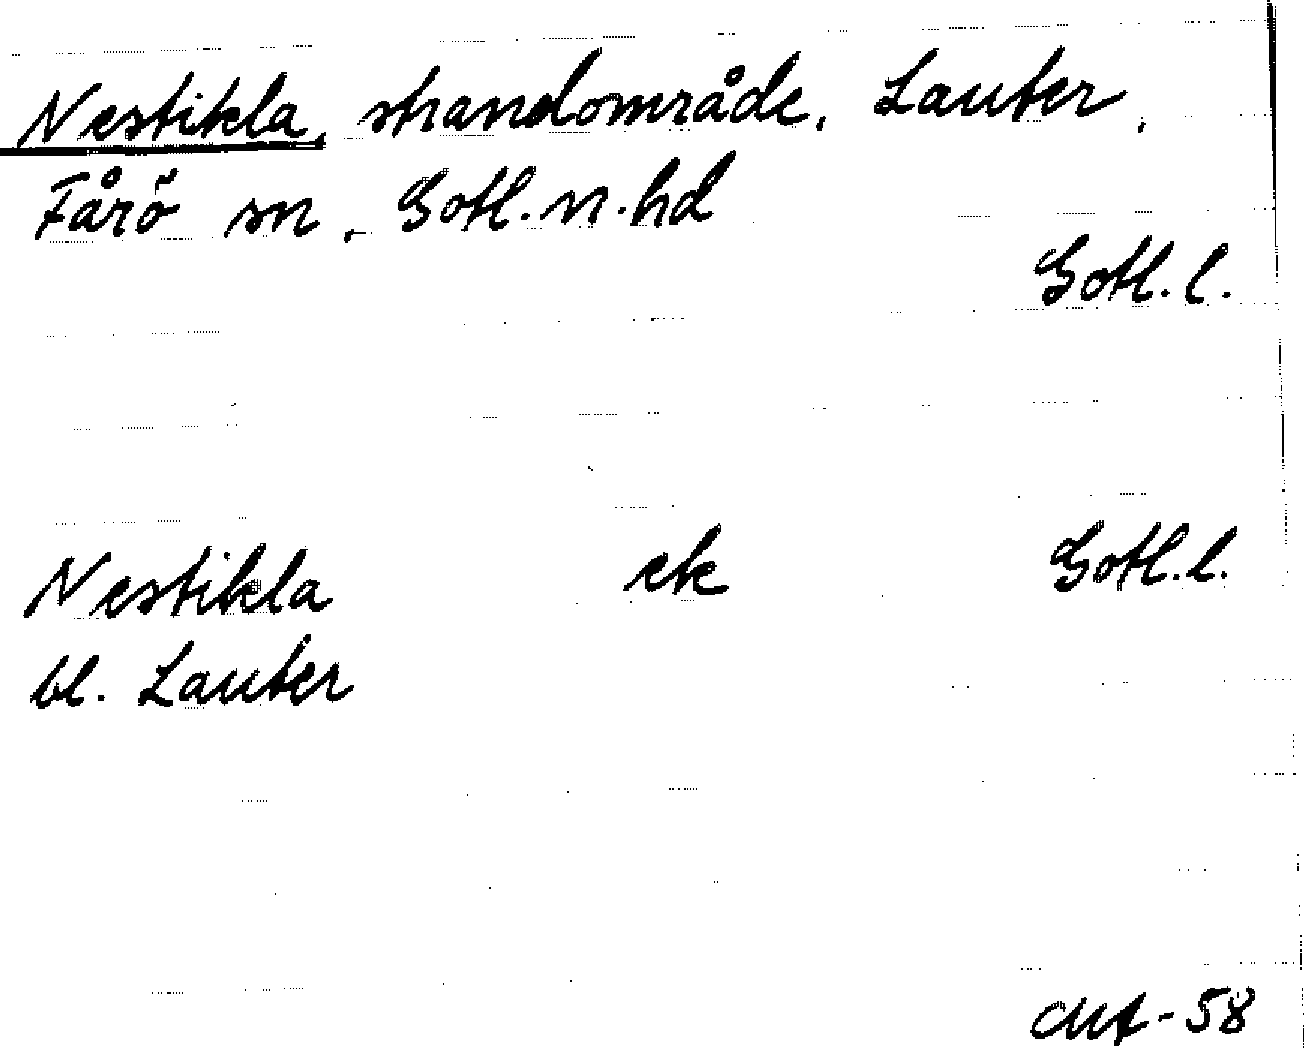 Nestikla, strandområde, Lauter,
Fårö sn, Gotl. n. hd
Gotl. l.
Nestikla ek Gotl. l.
bl. Lauter
-58